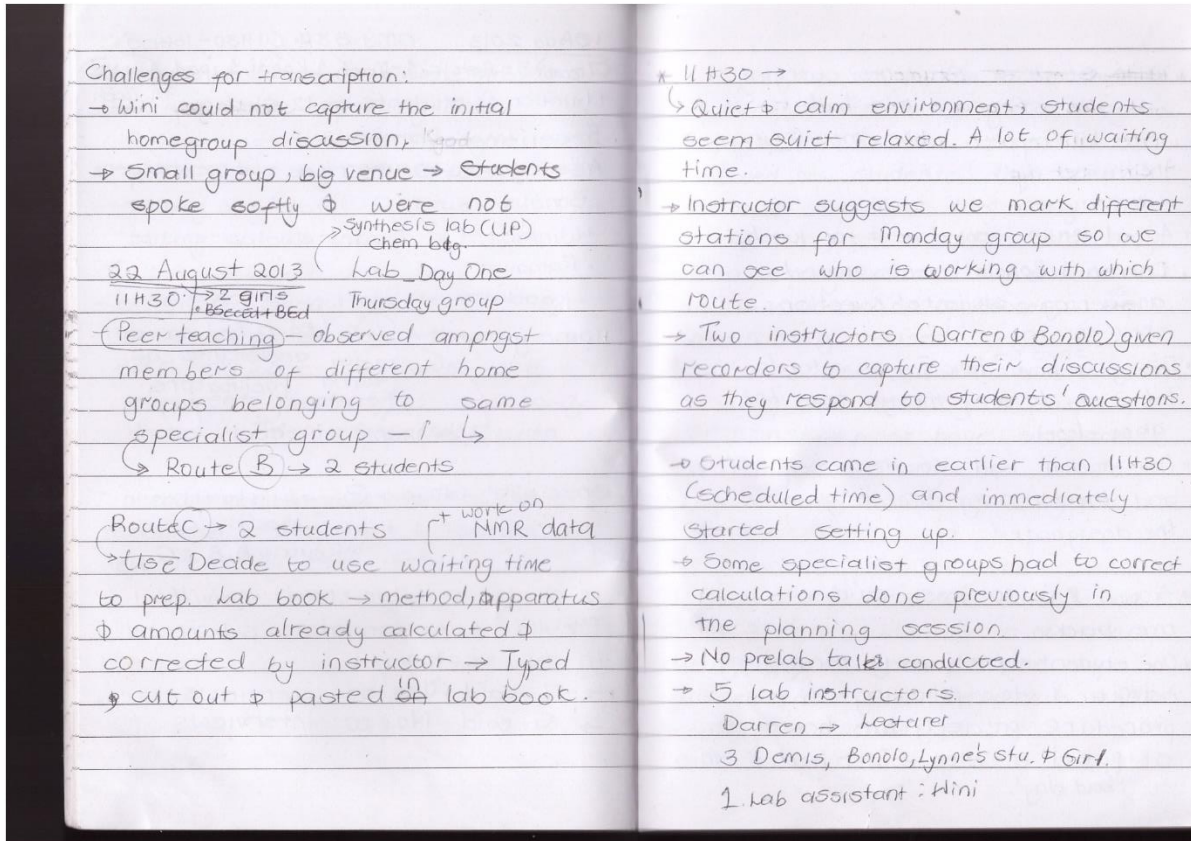 Challenges for transcription:
→ Wini could not capture the initial
homegroup discussion,
→ Small group, big venue → students
spoke softly & were not
→ Synthesis lab (UP)
chem bdg.
22 August 2013 Lab Day One
11H30 → 2 girls Thursday group
• BSced + BEd
Peer teaching – observed amongst
members of different home
groups belonging to same
specialist group –
→ Route B → 2 students
Route C → 2 students + work on NMR data
→ Decide to use waiting time
to prep. Lab book → method, apparatus
& amounts already calculated &
corrected by instructor → Typed
& cut out & pasted in lab book.
* 11H30 →
→ Quiet & calm environment, students
seem quiet relaxed. A lot of waiting
time.
→ Instructor suggests we mark different
stations for Monday group so we
can see who is working with which
route.
→ Two instructors (Darren & Bonolo) given
recorders to capture their discussions
as they respond to students' questions.
→ Students came in earlier than 11H30
(scheduled time) and immediately
started setting up.
→ Some specialist groups had to correct
calculations done previously in
the planning session
→ No prelab talks conducted.
→ 5 lab instructors
Darren → Lecturer
3 Demis, Bonolo, Lynne's stu. & Girl.
1. Lab assistant : Wini